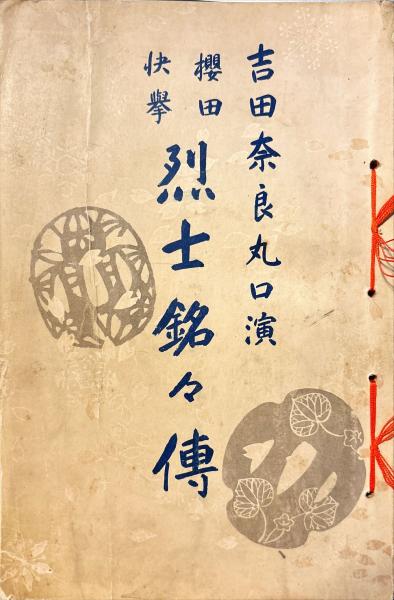 吉田奈良丸口演
櫻田
快擧
烈士銘々傳